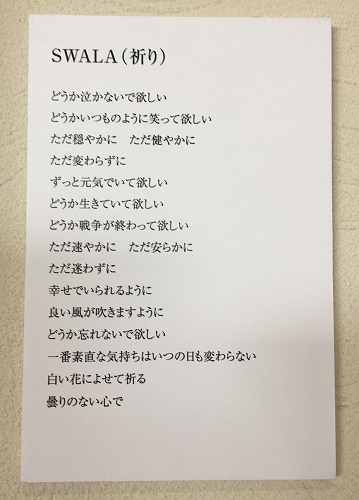 SWALA（祈り）
どうか泣かないで欲しい
どうかいつものように笑って欲しい
ただ穏やかに　ただ健やかに
ただ変わらずに
ずっと元気でいて欲しい
どうか生きていて欲しい
どうか戦争が終わって欲しい
ただ速やかに　ただ安らかに
ただ迷わずに
幸せでいられるように
良い風が吹きますように
どうか忘れないで欲しい
一番素直な気持ちはいつの日も変わらない
白い花によせて祈る
曇りのない心で